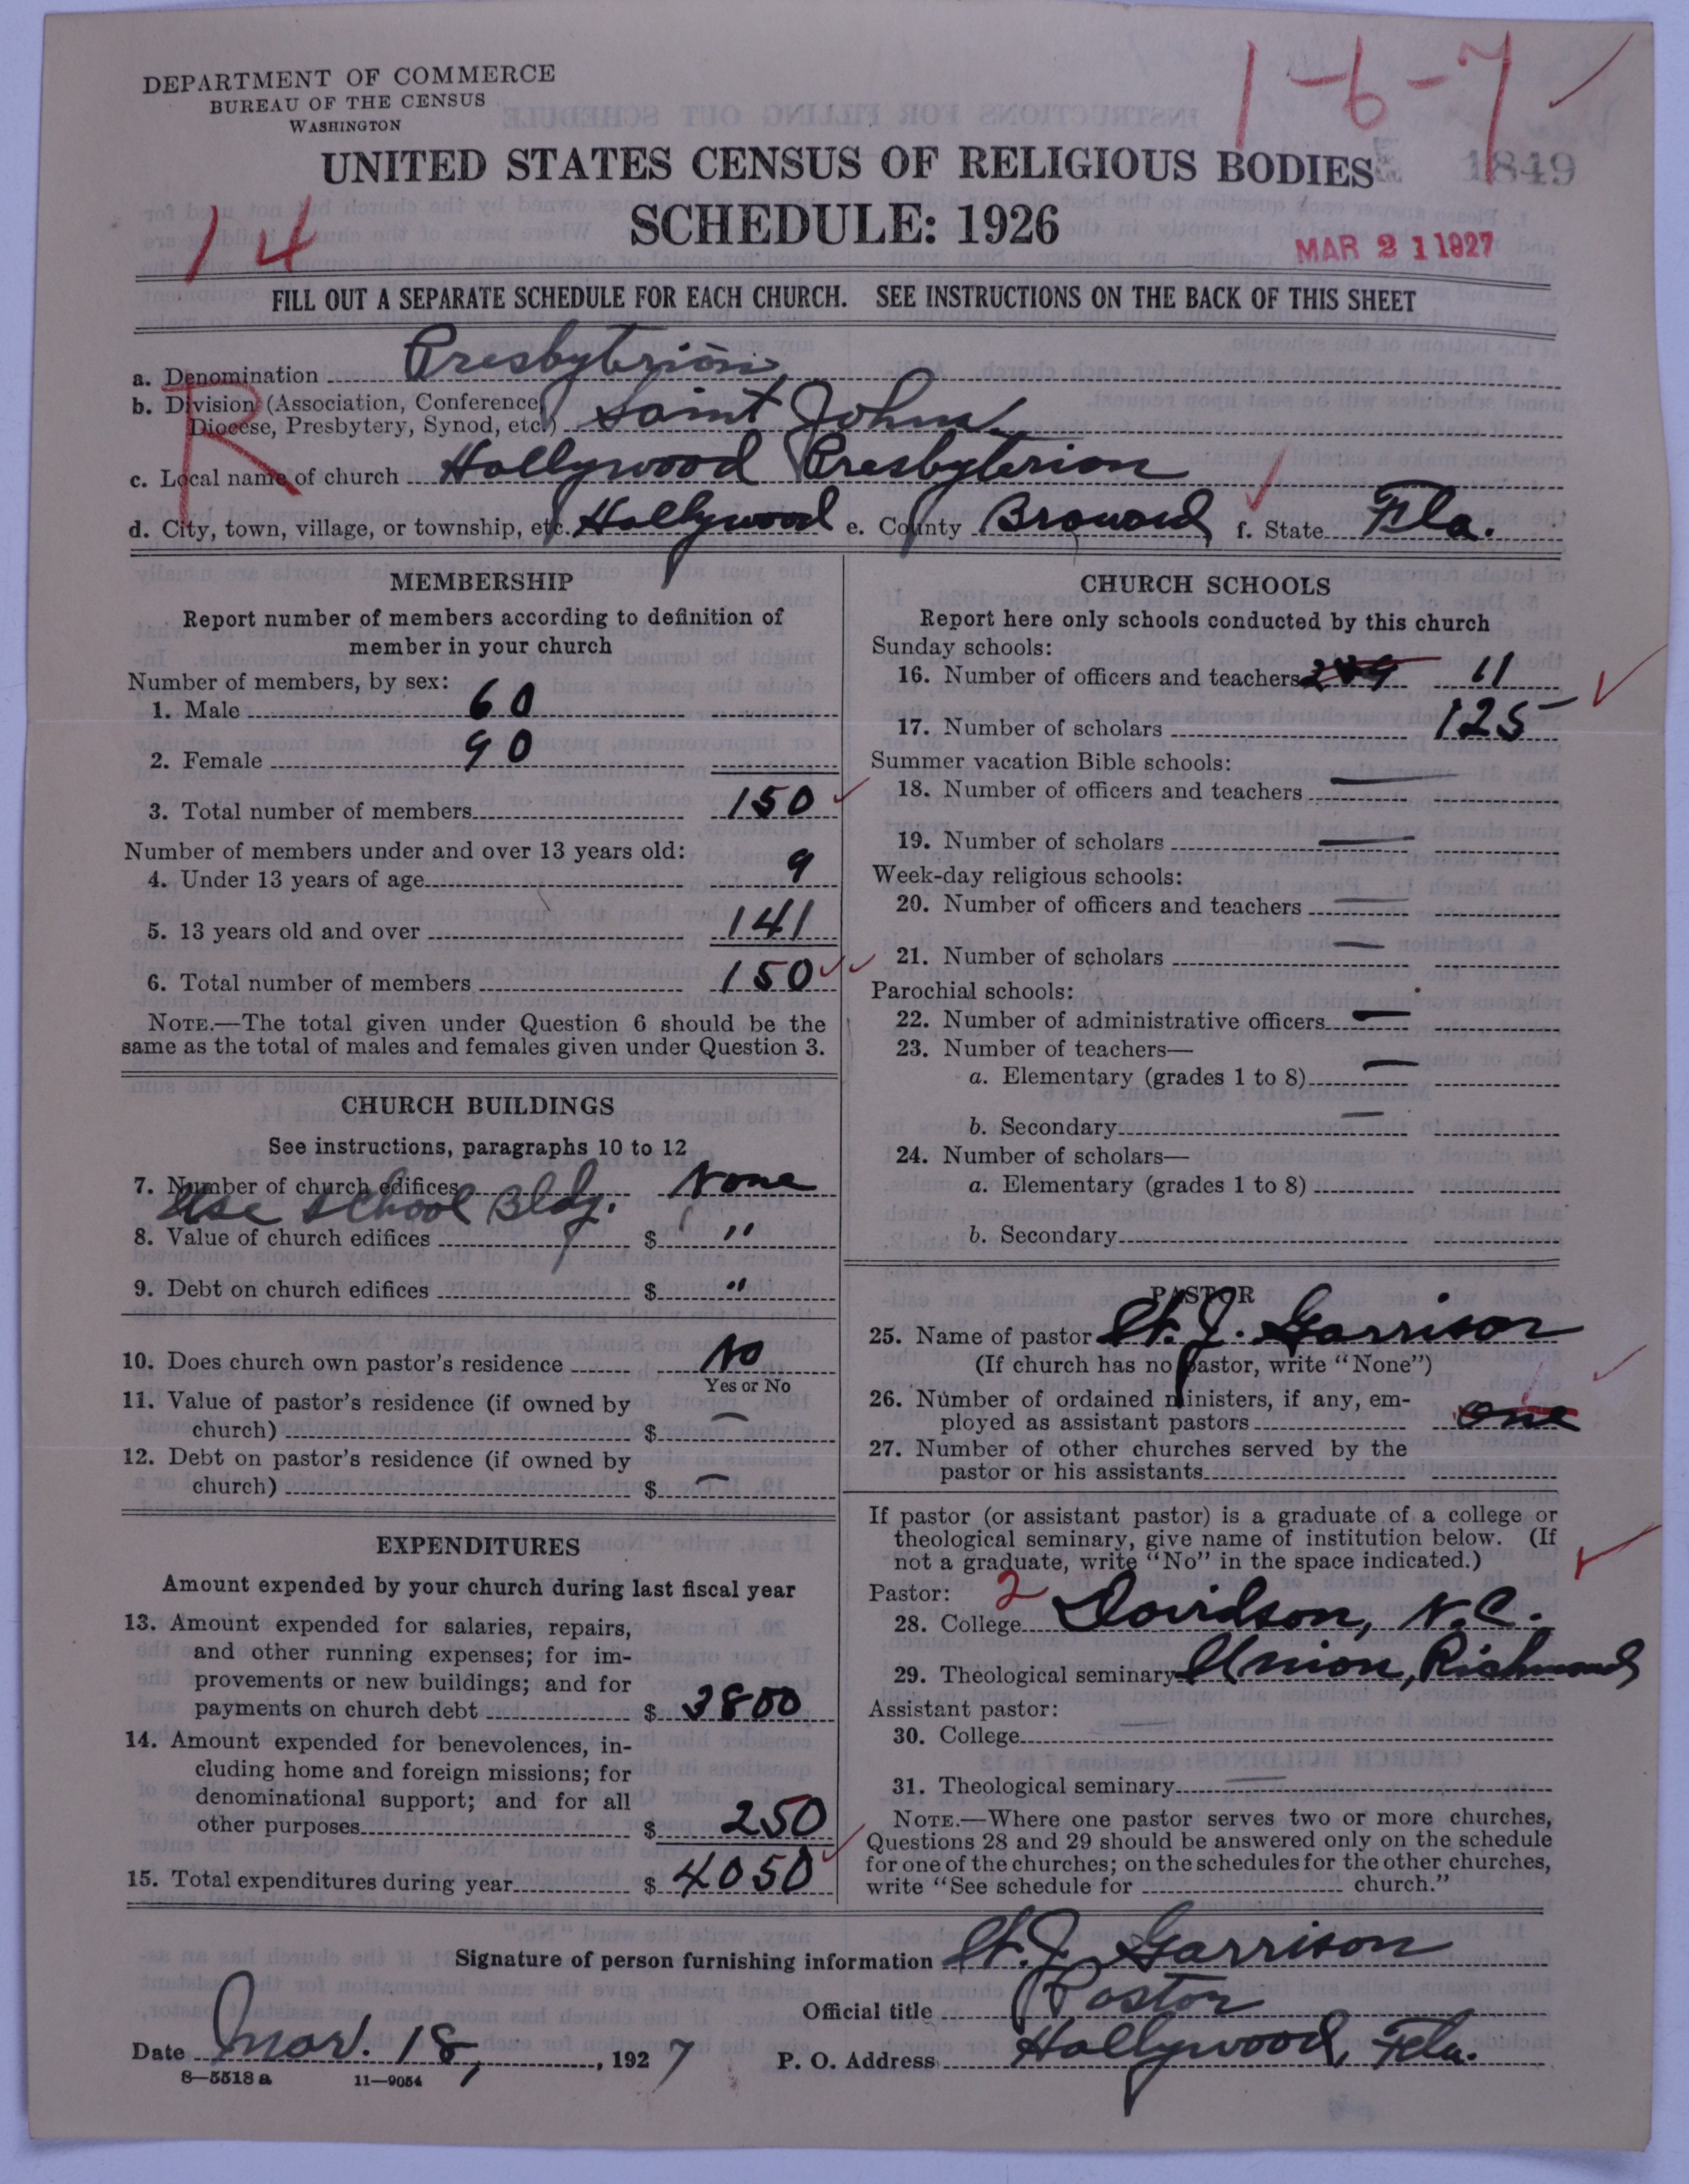 DEPARTMENT OF COMMERCE
BUREAU OF THE CENSUS
WASHINGTON
1-6-7
UNITED STATES CENSUS OF RELIGIOUS BODIES
1849
14
SCHEDULE: 1926
MAR 21 1927
FILL OUT A SEPARATE SCHEDULE FOR EACH CHURCH. SEE INSTRUCTIONS ON THE BACK OF THIS SHEET
R
a. Denomination Presbyterian
b. Division (Association, Conference,
Diocese, Presbytery, Synod, etc.) Saint Johns
c. Local name of church Hollywood Presbyterian
d. City, town, village, or township, etc. Hollywood e. County Broward f. State Fla.
MEMBERSHIP
Report number of members according to definition of
member in your church
Number of members, by sex:
1. Male 60
2. Female 90
3. Total number of members 150
Number of members under and over 13 years old:
4. Under 13 years of age 9
5. 13 years old and over 141
6. Total number of members 150
NOTE.—The total given under Question 6 should be the
same as the total of males and females given under Question 3.
CHURCH BUILDINGS
See instructions, paragraphs 10 to 12
7. Number of church edifices None
Use school Bldg.
8. Value of church edifices $ "
9. Debt on church edifices $ "
10. Does church own pastor's residence No
Yes or No
11. Value of pastor's residence (if owned by
church) $ —
12. Debt on pastor's residence (if owned by
church) $ —
EXPENDITURES
Amount expended by your church during last fiscal year
13. Amount expended for salaries, repairs,
and other running expenses; for im-
provements or new buildings; and for
payments on church debt $ 3800
14. Amount expended for benevolences, in-
cluding home and foreign missions; for
denominational support; and for all
other purposes $ 250
15. Total expenditures during year $ 4050
CHURCH SCHOOLS
Report here only schools conducted by this church
Sunday schools:
16. Number of officers and teachers 11
17. Number of scholars 125
Summer vacation Bible schools:
18. Number of officers and teachers —
19. Number of scholars —
Week-day religious schools:
20. Number of officers and teachers —
21. Number of scholars —
Parochial schools:
22. Number of administrative officers —
23. Number of teachers—
a. Elementary (grades 1 to 8) —
b. Secondary —
24. Number of scholars—
a. Elementary (grades 1 to 8)
b. Secondary
PASTOR
25. Name of pastor J. Garrison
(If church has no pastor, write "None")
26. Number of ordained ministers, if any, em-
ployed as assistant pastors one
27. Number of other churches served by the
pastor or his assistants
If pastor (or assistant pastor) is a graduate of a college or
theological seminary, give name of institution below. (If
not a graduate, write "No" in the space indicated.)
Pastor: 2
28. College Davidson, N.C.
29. Theological seminary Union, Richmond
Assistant pastor:
30. College
31. Theological seminary —
NOTE.—Where one pastor serves two or more churches,
Questions 28 and 29 should be answered only on the schedule
for one of the churches; on the schedules for the other churches,
write "See schedule for church."
Signature of person furnishing information J. Garrison
Official title Pastor
Date Mar. 18, 1927 P. O. Address Hollywood, Fla.
8—5518 a 11—9054